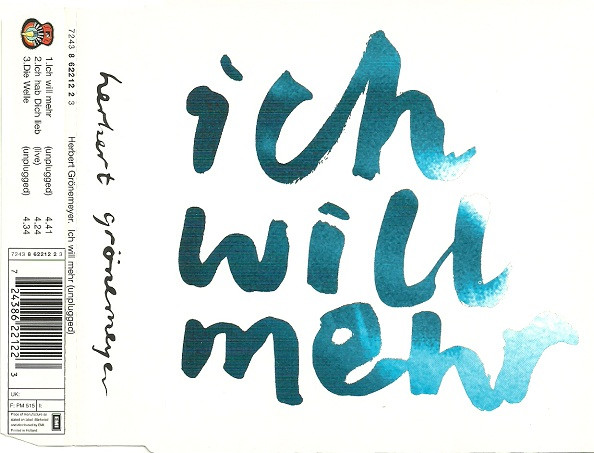 ich
will
mehr
herbert grönemeyer
Herbert Grönemeyer. Ich will mehr (unplugged)
7243 8 62212 2 3
1.Ich will mehr (unplugged) 4.41
2.Ich hab Dich lieb (live) 4.24
3.Die Welle (unplugged) 4.34
7243 8 62212 2 3
7 24386 22122 3
UK:
F: PM 515 I:
Printed in Holland
EMI